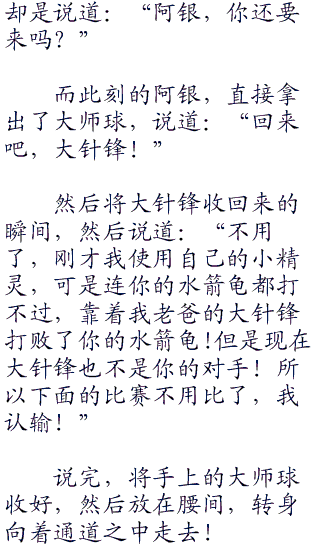 却是说道：“阿银，你还要
来吗？”
而此刻的阿银，直接拿
出了大师球，说道：“回来
吧，大针锋！”
然后将大针锋收回来的
瞬间，然后说道：“不用
了，刚才我使用自己的小精
灵，可是连你的水箭龟都打
不过，靠着我老爸的大针锋
打败了你的水箭龟!但是现在
大针锋也不是你的对手！所
以下面的比赛不用比了，我
认输！”
说完，将手上的大师球
收好，然后放在腰间，转身
向着通道之中走去！